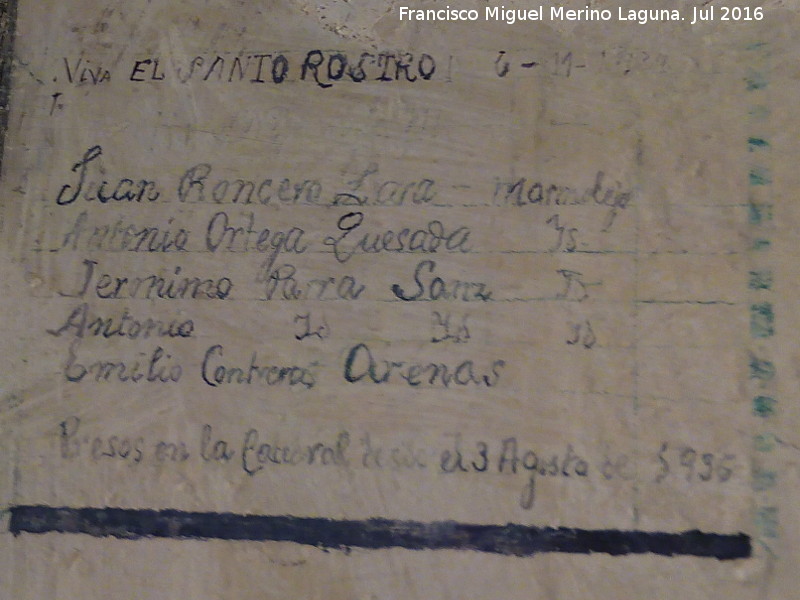 Francisco Miguel Merino Laguna. Jul 2016
VIVA EL SANTO ROSTRO! 6-11-
Juan Roncero Lara - Marmolejo
Antonio Ortega Quesada Id
Jermimo Parra Sanz Id
Antonio Id Id Id
Emilio Contreras Arenas
Presos en la Catedral desde el 3 Agosto de 1936